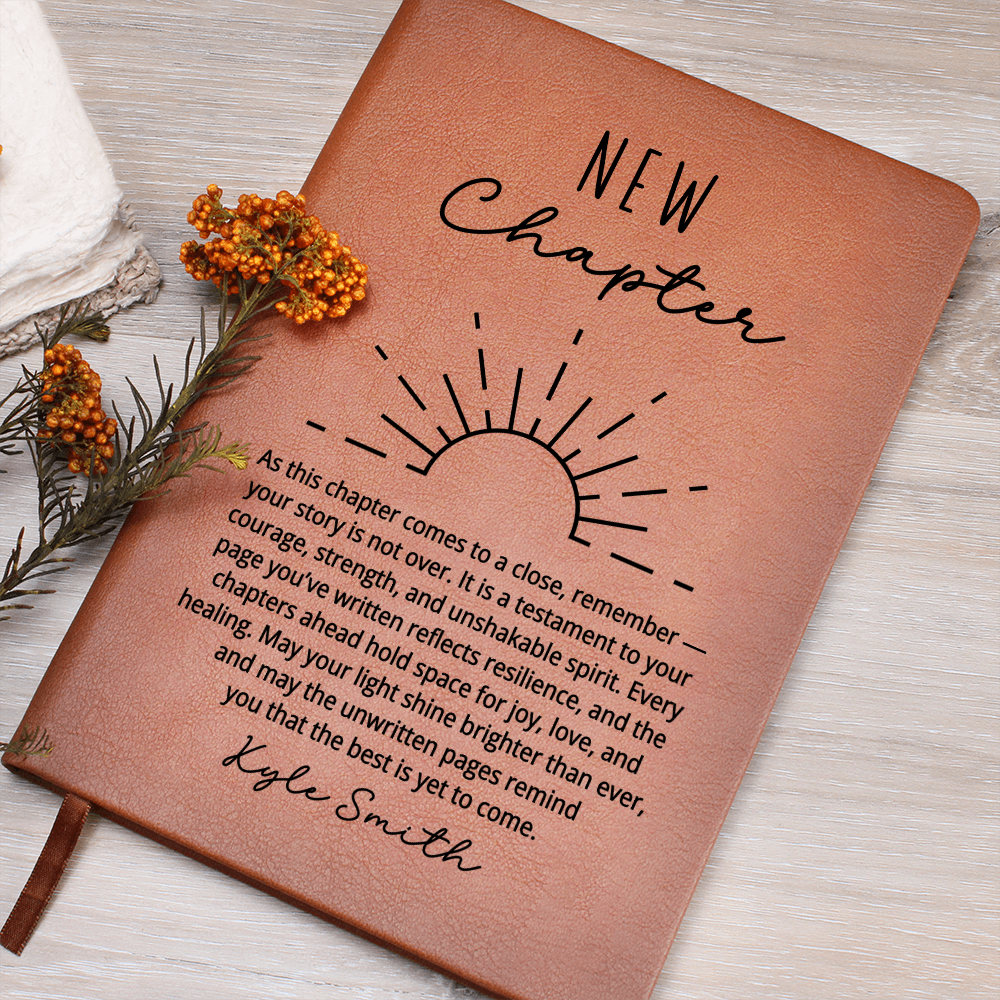 NEW
Chapter
As this chapter comes to a close, remember —
your story is not over. It is a testament to your
courage, strength, and unshakable spirit. Every
page you've written reflects resilience, and the
chapters ahead hold space for joy, love, and
healing. May your light shine brighter than ever,
and may the unwritten pages remind
you that the best is yet to come.
Kyle Smith